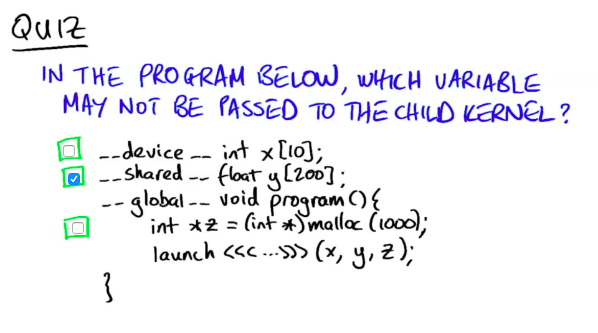 QUIZ
IN THE PROGRAM BELOW, WHICH VARIABLE
MAY NOT BE PASSED TO THE CHILD KERNEL?
--device-- int x[10];
--shared-- float y[200];
--global-- void program(){
int *z = (int *)malloc(1000);
launch <<<...>>> (x, y, z);
}